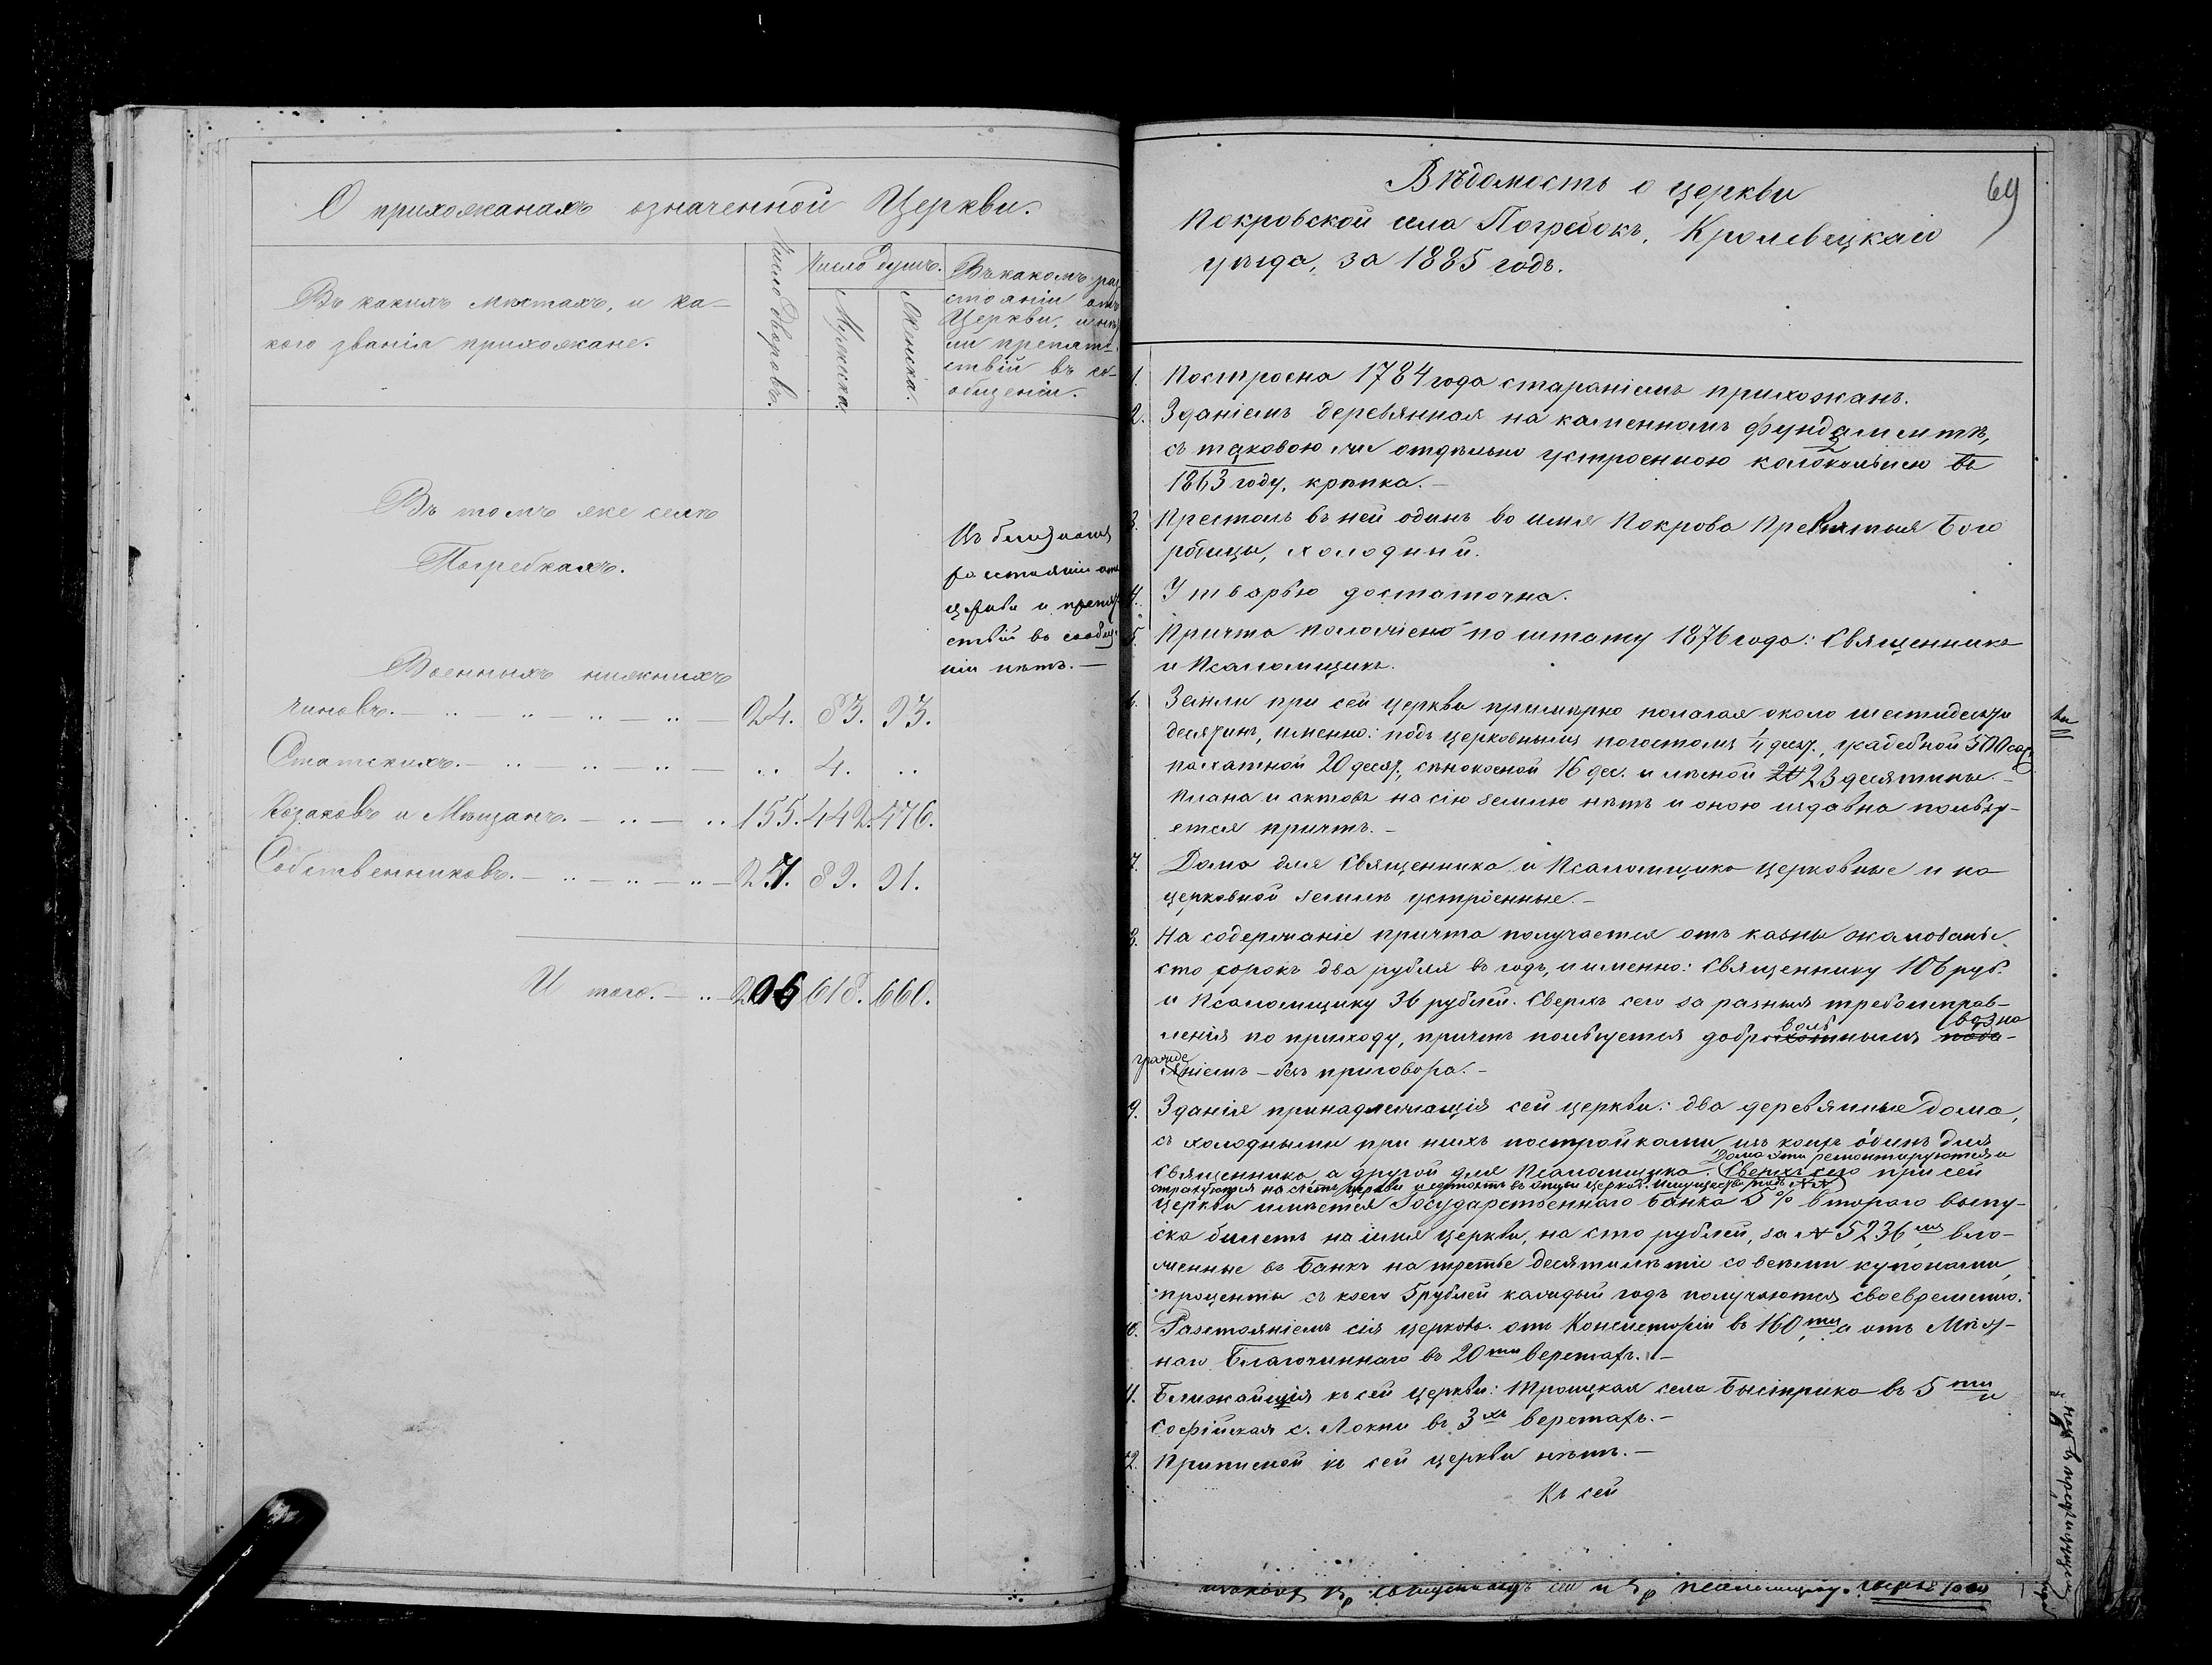 О прихожанахъ означенной Церкви.
Въ какихъ мѣстахъ, и ка-
кого званія прихожане.
Число дворовъ.
Число душъ.
Мужска.
Женска.
Въ какомъ раз
стояніи отъ
Церкви, и нѣтъ
ли препят-
ствій въ со-
общеніи.
Въ томъ же селѣ
Погребкахъ.
Въ близкомъ
разстояніи отъ
церкви и препят
ствій въ сообще
ніи нѣтъ. —
Военныхъ нижнихъ
чиновъ. — .. .. — .. — .. 24. 83. 93.
Статскихъ. — .. — .. — .. — .. 4. ..
Козаковъ и Мѣщанъ. — .. — .. 155. 442. 476.
Собственниковъ. — .. — .. — .. — 27. 89. 91.
И того. — .. — 206 618. 660.
69
Вѣдомость о церкви
Покровской села Погребокъ, Кролевецкаго
уѣзда, за 1885 годъ.
1. Построена 1784 года стараніемъ прихожанъ.
2. Зданіемъ деревянная на каменномъ фундаментѣ,
съ таковою же отдѣльно устроенною колокольнею въ
1863 году, крѣпка. —
3. Престолъ въ ней одинъ во имя Покрова Пресвятыя Бого
родицы, холодный.
4. Утварью достаточна.
5. Причта положено по штату 1876 года: Священникъ
и Псаломщикъ.
6. Земли при сей церкви примѣрно полагая около шестидесяти
десятинъ, именно: подъ церковнымъ погостомъ 1/4 десят., усадебной 500 саж
пахатной 20 десят., сѣнокосной 16 дес. и лѣсной 23 десятины. —
Плана и актовъ на сію землю нѣтъ и оною издавна пользу-
ется причтъ. —
7. Дома для Священника и Псаломщика церковные и на
церковной землѣ устроенные. —
8. На содержаніе причта получается отъ казны жалованья
сто сорокъ два рубля въ годъ, и именно: Священнику 106 руб.
и Псаломщику 36 рублей. Сверхъ сего за разныя требоисправ-
вольвозна
ленія по приходу, причтъ пользуется доброхотнымъ пода-
гражде
яніемъ — безъ приговора. —
9. Зданія принадлежащія сей церкви: два деревянные дома,
съ холодными при нихъ постройками изъ коихъ одинъ для
Дома эти ремонтируются и
Священника а другой для Псаломщика. Сверхъ сего при сей
страхуются на счетъ церкви и состоятъ въ описи церков. имущества подъ №№
церкви имѣется Государственнаго Банка 5% втораго выпу-
ска билетъ на имя церкви, на сто рублей, за № 5236мъ, вло-
женные въ Банкъ на третье десятилѣтіе со всѣми купонами,
проценты съ коего 5 рублей каждый годъ получаются своевременно.
10. Разстояніемъ сія церковь отъ Консисторіи въ 160ти, а отъ Мѣст-
наго Благочиннаго въ 20ти верстахъ. —
11. Ближайшія къ сей церкви: Троицкая села Быстрика въ 5ти и
Софійская с. Локни въ 3хъ верстахъ. —
12. Приписной къ сей церкви нѣтъ. —
Къ сей